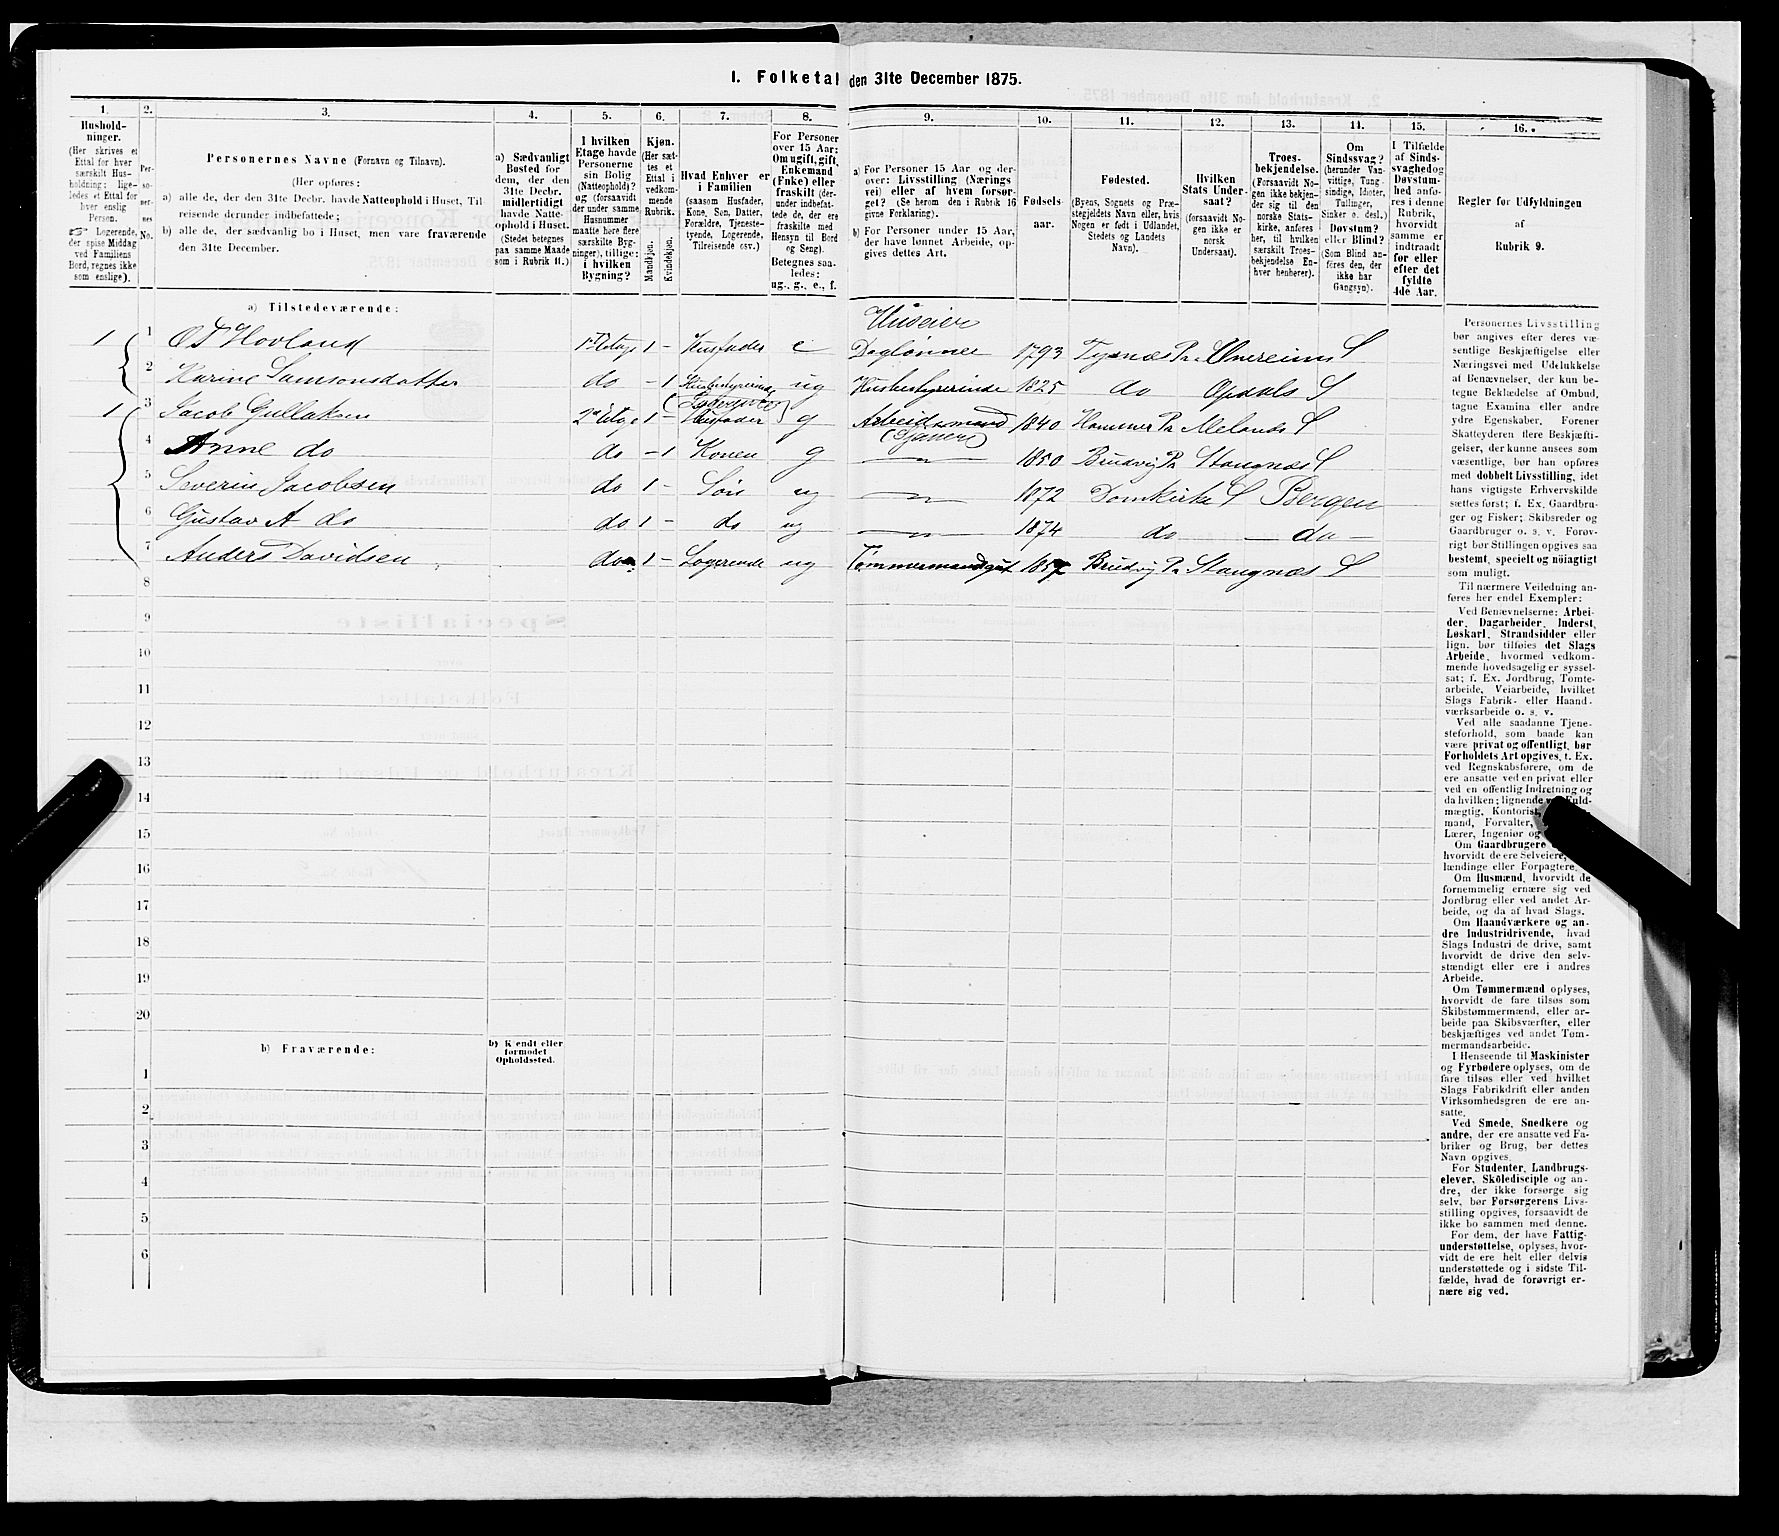 I. Folketal den 31te December 1875.
1. 2. 3. 4. 5. 6. 7. 8. 9. 10. 11. 12. 13. 14. 15. 16.
Hushold-
ninger.
(Her skrives et
Ettal for hver
særskilt Hus-
holdning; lige-
ledes et Ettal for
hver enslig
Person.
☞ Logerende,
der spise Middag
ved Familiens
Bord, regnes ikke
som enslige).
Per-
so-
ner-
nes
No.
Personernes Navne (Fornavn og Tilnavn).
(Her opføres:
a) alle de, der den 31te Decbr. havde Natteophold i Huset, Til-
reisende derunder indbefattede;
b) alle de, der sædvanlig bo i Huset, men vare fraværende
den 31te December.
a) Sædvanligt
Bosted for
dem, der den
31te Decbr.
midlertidigt
havde Natte-
ophold i Huset.
(Stedet betegnes
paa samme Maade
som i Rubrik 11.)
I hvilken
Etage havde
Personerne
sin Bolig
(Natteophold)?
og (forsaavidt
der under samme
Husnummer
maatte høre flere
særskilte Byg-
ninger), tillige:
i hvilken
Bygning?
Kjøn.
(Her sæt-
tes et
Ettal i
vedkom-
mende
Rubrik.
Mandkjøn.
Kvindekjøn.
Hvad Enhver er
i Familien
(saasom Husfader,
Kone, Søn, Datter,
Forældre, Tjeneste-
tyende, Logerende,
Tilreisende osv.)
For Personer
over 15 Aar:
Om ugift, gift,
Enkemand
(Enke) eller
fraskilt (der-
under indbefat-
tede de, der ere
fraskilte med
Hensyn til Bord
og Seng).
Betegnes saa-
ledes:
ug., g., e., f.
a) For Personer 15 Aar og der-
over: Livsstilling (Nærings-
vei) eller af hvem forsør-
get? (Se herom den i Rubrik 16
givne Forklaring).
b) For Personer under 15 Aar,
der have lønnet Arbeide, op-
gives dettes Art.
Fødsels-
aar.
Fødested.
(Byens, Sognets og Præ-
stegjeldets Navn eller, hvis
Nogen er født i Udlandet,
Stedets og Landets
Navn).
Hvilken
Stats Under-
saat?
(forsaavidt No-
gen ikke er
norsk
Undersaat).
Troes-
bekjendelse.
(Forsaavidt No-
gen ikke bekjen-
der sig til den
norske Stats-
kirke, anføres
her, til hvilken
særskilt Troes-
bekjendelse En-
hver henhører).
Om
Sindssvag?
(herunder Van-
vittige, Tung-
sindige, Idioter,
Tullinger,
Sinker o. desl.)
Døvstum?
eller Blind?
(Som Blind an-
føres den, der
ikke har
Gangsyn).
I Tilfælde
af Sinds-
svaghed og
Døvstum-
hed anfø-
res i denne
Rubrik,
hvorvidt
samme er
indtraadt
før eller
efter det
fyldte
4de Aar.
Regler for Udfyldningen
af
Rubrik 9.
a) Tilstedeværende:
Huseier
1 1 O T Hovland 1ste Etage 1 - Husfader e Daglønner 1793 Tysnæs Pr Onereims S
2 Karine Samsonsdatter do - 1 Husbestyrerinde ug Husbestyrerinde 1825 do Opdals S
1 3 Jacob Gullaksen 2den Etage 1 - Husfader g Arbeidsmand 1840 Hammer Pr Melands S
4 Anne do do - 1 Konen g 1850 Bruvig Pr Stangnæs S
5 Severin Jacobsen do 1 - Søn ug 1872 Domkirke S Bergen
6 Gustav A do do 1 - do ug 1874 do - do -
7 Anders Davidsen do 1 - Logerende ug Tømmermandsgut 1857 Bruvig Pr Stangnæs S
8
9
10
11
12
13
14
15
16
17
18
19
20
b) Fraværende:
b) Kjendt eller
formodet
Opholdssted.
1
2
3
4
5
6
Personernes Livsstilling
bør angives efter deres væ-
sentlige Beskjæftigelse eller
Næringsvei med Udelukkelse
af Benævnelser, der kun be-
tegne Beklædelse af Ombud,
tagne Examina eller andre
ydre Egenskaber. Forener
Skatteyderen flere Beskjæfti-
gelser, der kunne ansees som
væsentlige, bør han opføres
med dobbelt Livsstilling, idet
hans vigtigste Erhvervskilde
sættes først; f. Ex. Gaardbru-
ger og Fisker; Skibsreder og
Gaardbruger o. s. v. Forøv-
rigt bør Stillingen opgives saa
bestemt, specielt og nöiagtigt
som muligt.
Til nærmere Veiledning an-
føres her endel Exempler:
Ved Benævnelserne: Arbei-
der, Dagarbeider, Inderst,
Løskarl, Strandsidder eller
lign. bør tilføies det Slags
Arbeide, hvormed vedkom-
mende hovedsagelig er syssel-
sat; f. Ex. Jordbrug, Tomte-
arbeide, Veiarbeide, hvilket
Slags Fabrik- eller Haand-
værksarbeide o. s. v.
Ved alle saadanne Tjene-
steforhold, som baade kan
være privat og offentligt, bør
Forholdets Art opgives, f. Ex.
ved Regnskabsførere, om de
ere ansatte ved en privat eller
ved en offentlig Indretning og
da hvilken; lignende ved Fuld-
mægtig, Kontorist,
mand, Forvalter,
Lærer, Ingeniør og
Om Gaardbrugere
hvorvidt de ere Selveiere,
lændinge eller Forpagtere.
Om Husmænd, hvorvidt de
fornemmelig ernære sig ved
Jordbrug eller ved andet Ar-
beide, og da af hvad Slags.
Om Haandværkere og an-
dre Industridrivende, hvad
Slags Industri de drive, samt
hvorvidt de drive den selv-
stændigt eller ere i andres
Arbeide.
Om Tømmermænd oplyses,
hvorvidt de fare tilsøs som
Skibstømmermænd, eller ar-
beide paa Skibsværfter, eller
beskjæftiges ved andet Tøm-
mermandsarbeide.
I Henseende til Maskinister
og Fyrbødere oplyses, om de
fare tilsøs eller ved hvilket
Slags Fabrikdrift eller anden
Virksomhedsgren de ere an-
satte.
Ved Smede, Snedkere og
andre, der ere ansatte ved Fa-
briker og Brug, bør dettes
Navn opgives.
For Studenter, Landbrugs-
elever, Skoledisciple og an-
dre, der ikke forsørge sig
selv, bør Forsørgerens Livs-
stilling opgives, forsaavidt de
ikke bo sammen med denne.
For dem, der have Fattig-
understøttelse, oplyses, hvor-
vidt de ere helt eller delvis
understøttede og i sidste Til-
fælde, hvad de forøvrigt er-
nære sig ved.